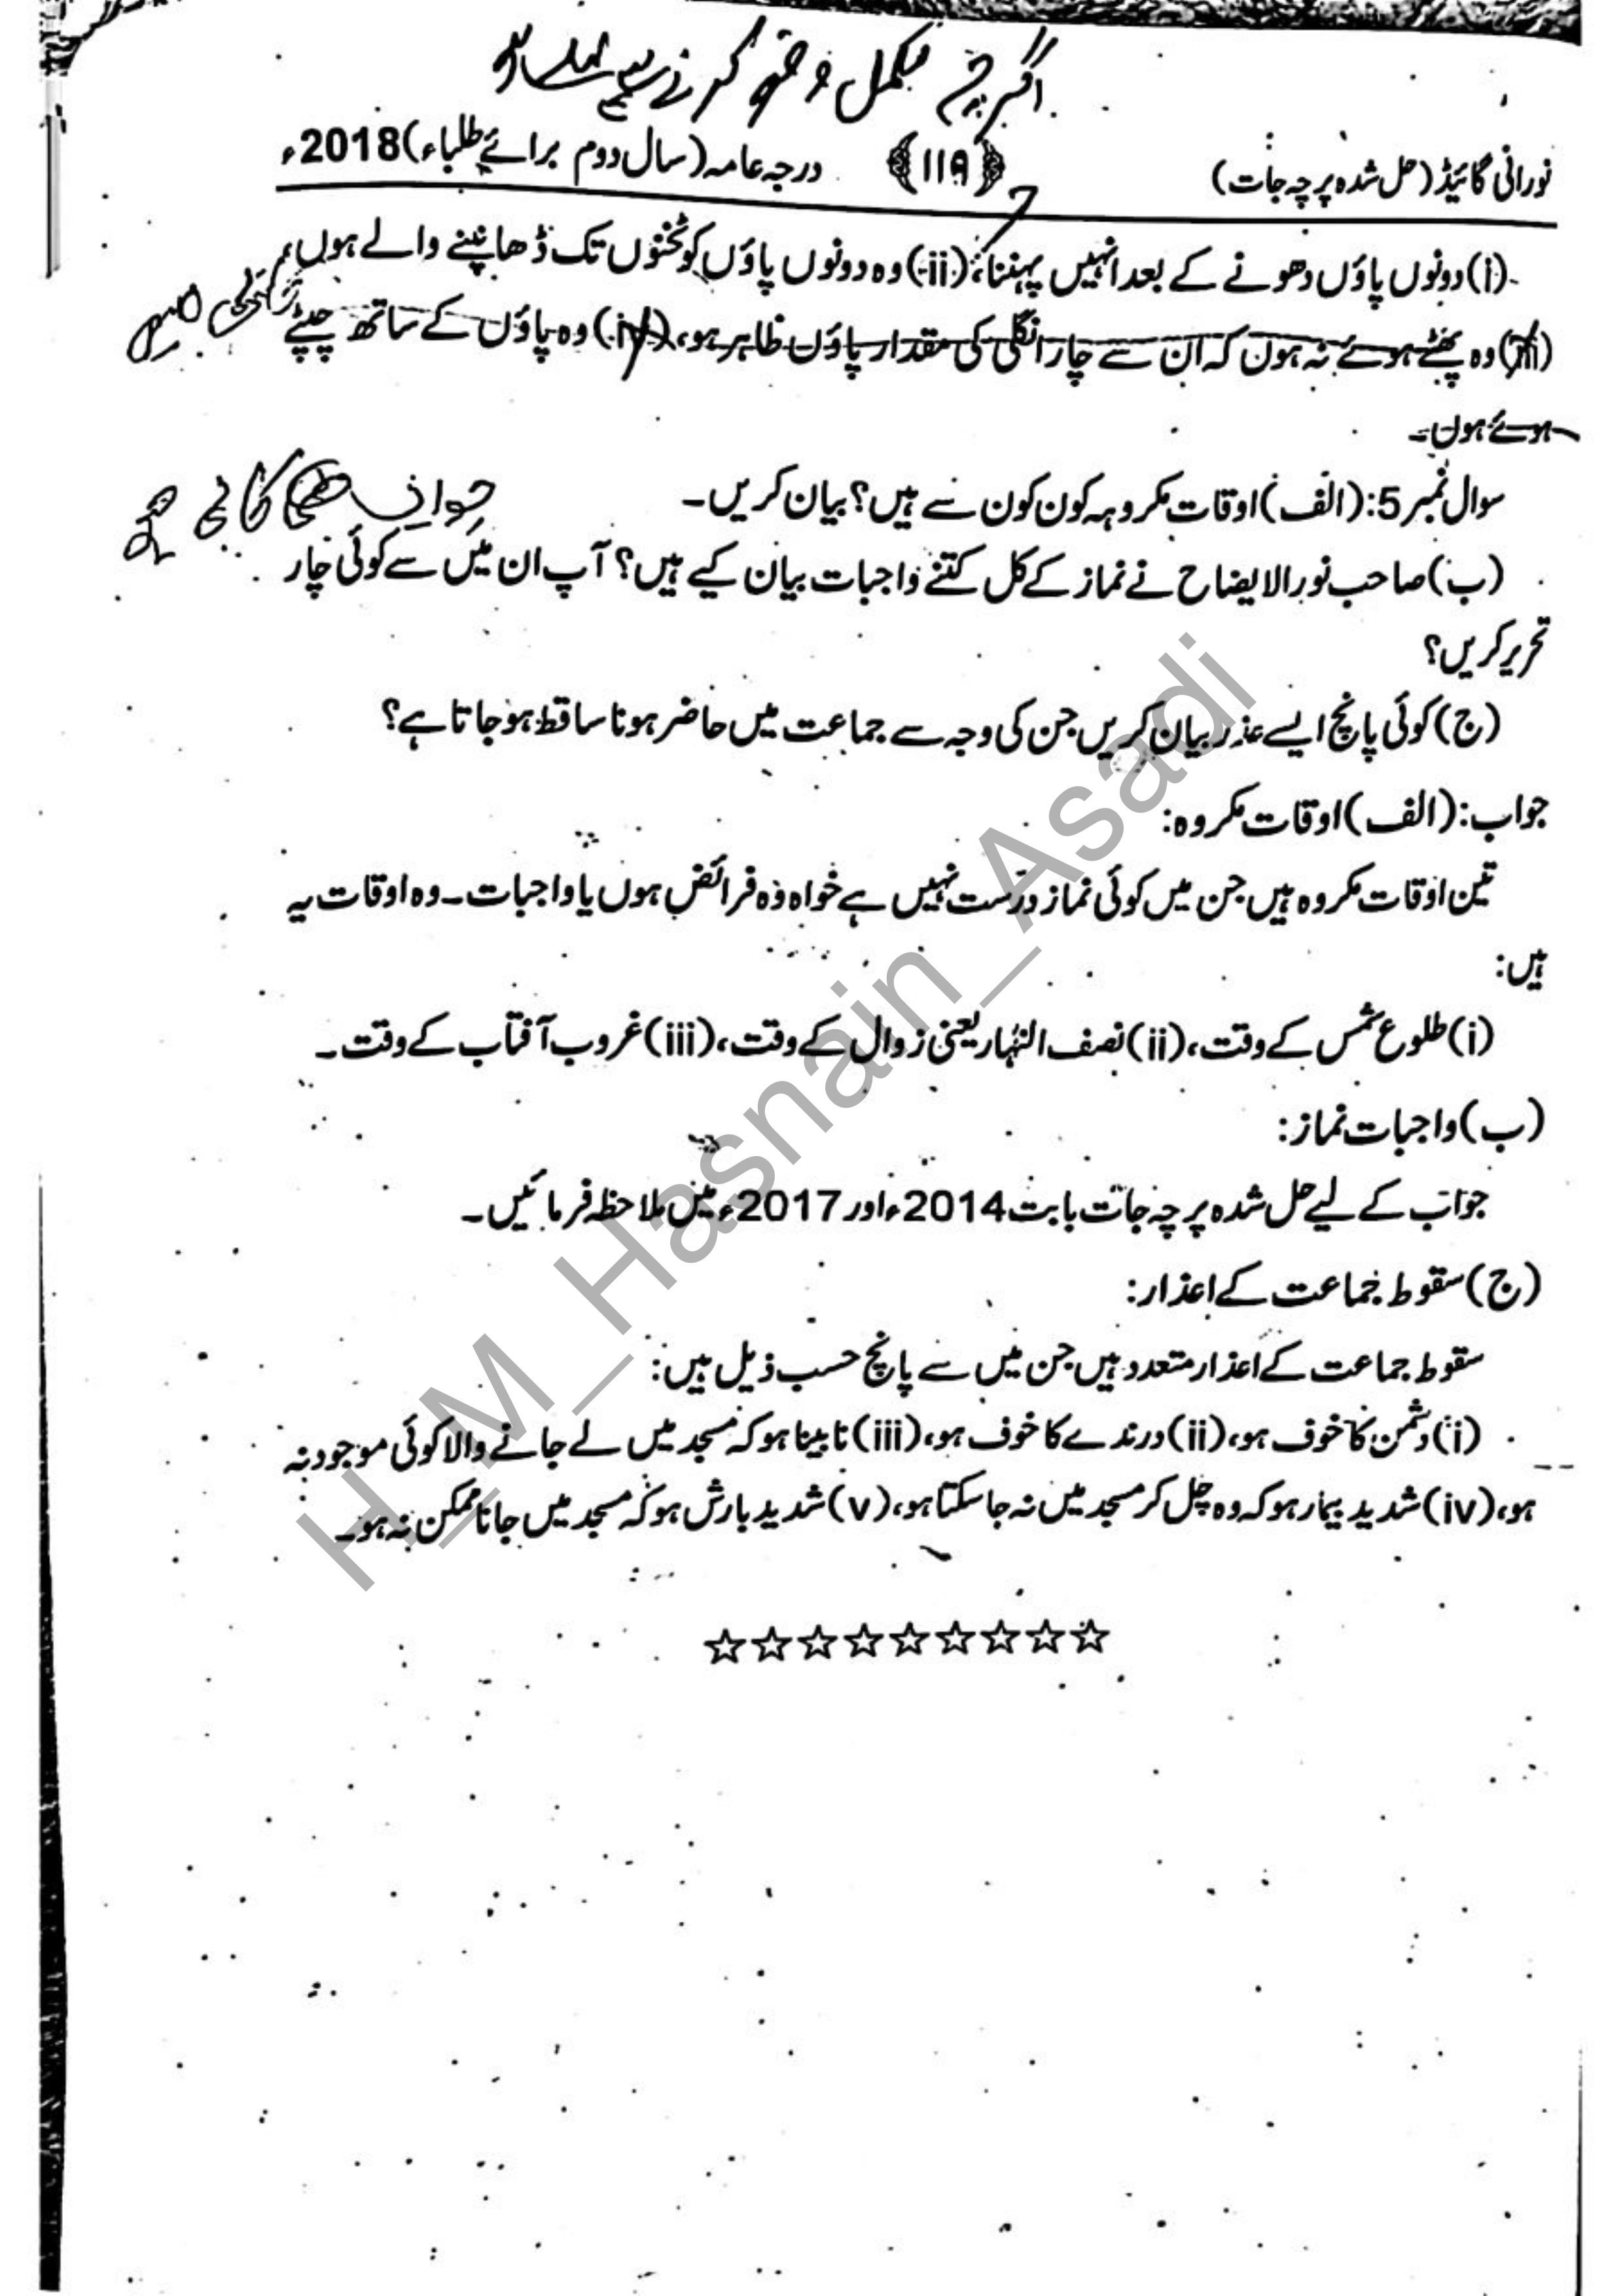 اگرچہ مکمل وضو کرنے سے پہلے ہو
نورانی گائیڈ (حل شدہ پرچہ جات) ﴿۱۱۹﴾ درجہ عامہ (سال دوم برائے طلباء) 2018ء
(i) دونوں پاؤں دھونے کے بعد انہیں پہننا، (ii) وہ دونوں پاؤں کو ٹخنوں تک ڈھانپنے والے ہوں،
(iii) وہ پھٹے ہوئے نہ ہوں کہ ان سے چار انگلی کی مقدار پاؤں ظاہر ہو، (iv) وہ پاؤں کے ساتھ چمٹے
ہوئے ہوں۔
سوال نمبر 5: (الف) اوقات مکروہہ کون کون سے ہیں؟ بیان کریں۔
(ب) صاحب نور الایضاح نے نماز کے کل کتنے واجبات بیان کیے ہیں؟ آپ ان میں سے کوئی چار
تحریر کریں؟
(ج) کوئی پانچ ایسے عذر بیان کریں جن کی وجہ سے جماعت میں حاضر ہونا ساقط ہو جاتا ہے؟
جواب: (الف) اوقات مکروہ:
تین اوقات مکروہ ہیں جن میں کوئی نماز درست نہیں ہے خواہ وہ فرائض ہوں یا واجبات۔ وہ اوقات یہ
ہیں:
(i) طلوع شمس کے وقت، (ii) نصف النہار یعنی زوال کے وقت، (iii) غروب آفتاب کے وقت۔
(ب) واجبات نماز:
جواب کے لیے حل شدہ پرچہ جات بابت 2014ء اور 2017ء میں ملاحظہ فرمائیں۔
(ج) سقوط جماعت کے اعذار:
سقوط جماعت کے اعذار متعدد ہیں جن میں سے پانچ حسب ذیل ہیں:
(i) دشمن کا خوف ہو، (ii) درندے کا خوف ہو، (iii) نابینا ہو کہ مسجد میں لے جانے والا کوئی موجود نہ
ہو، (iv) شدید بیمار ہو کہ وہ چل کر مسجد میں نہ جا سکتا ہو، (v) شدید بارش ہو کہ مسجد میں جانا ممکن نہ ہو۔
☆☆☆☆☆☆☆☆☆
H_M_Hasnain_Asadi